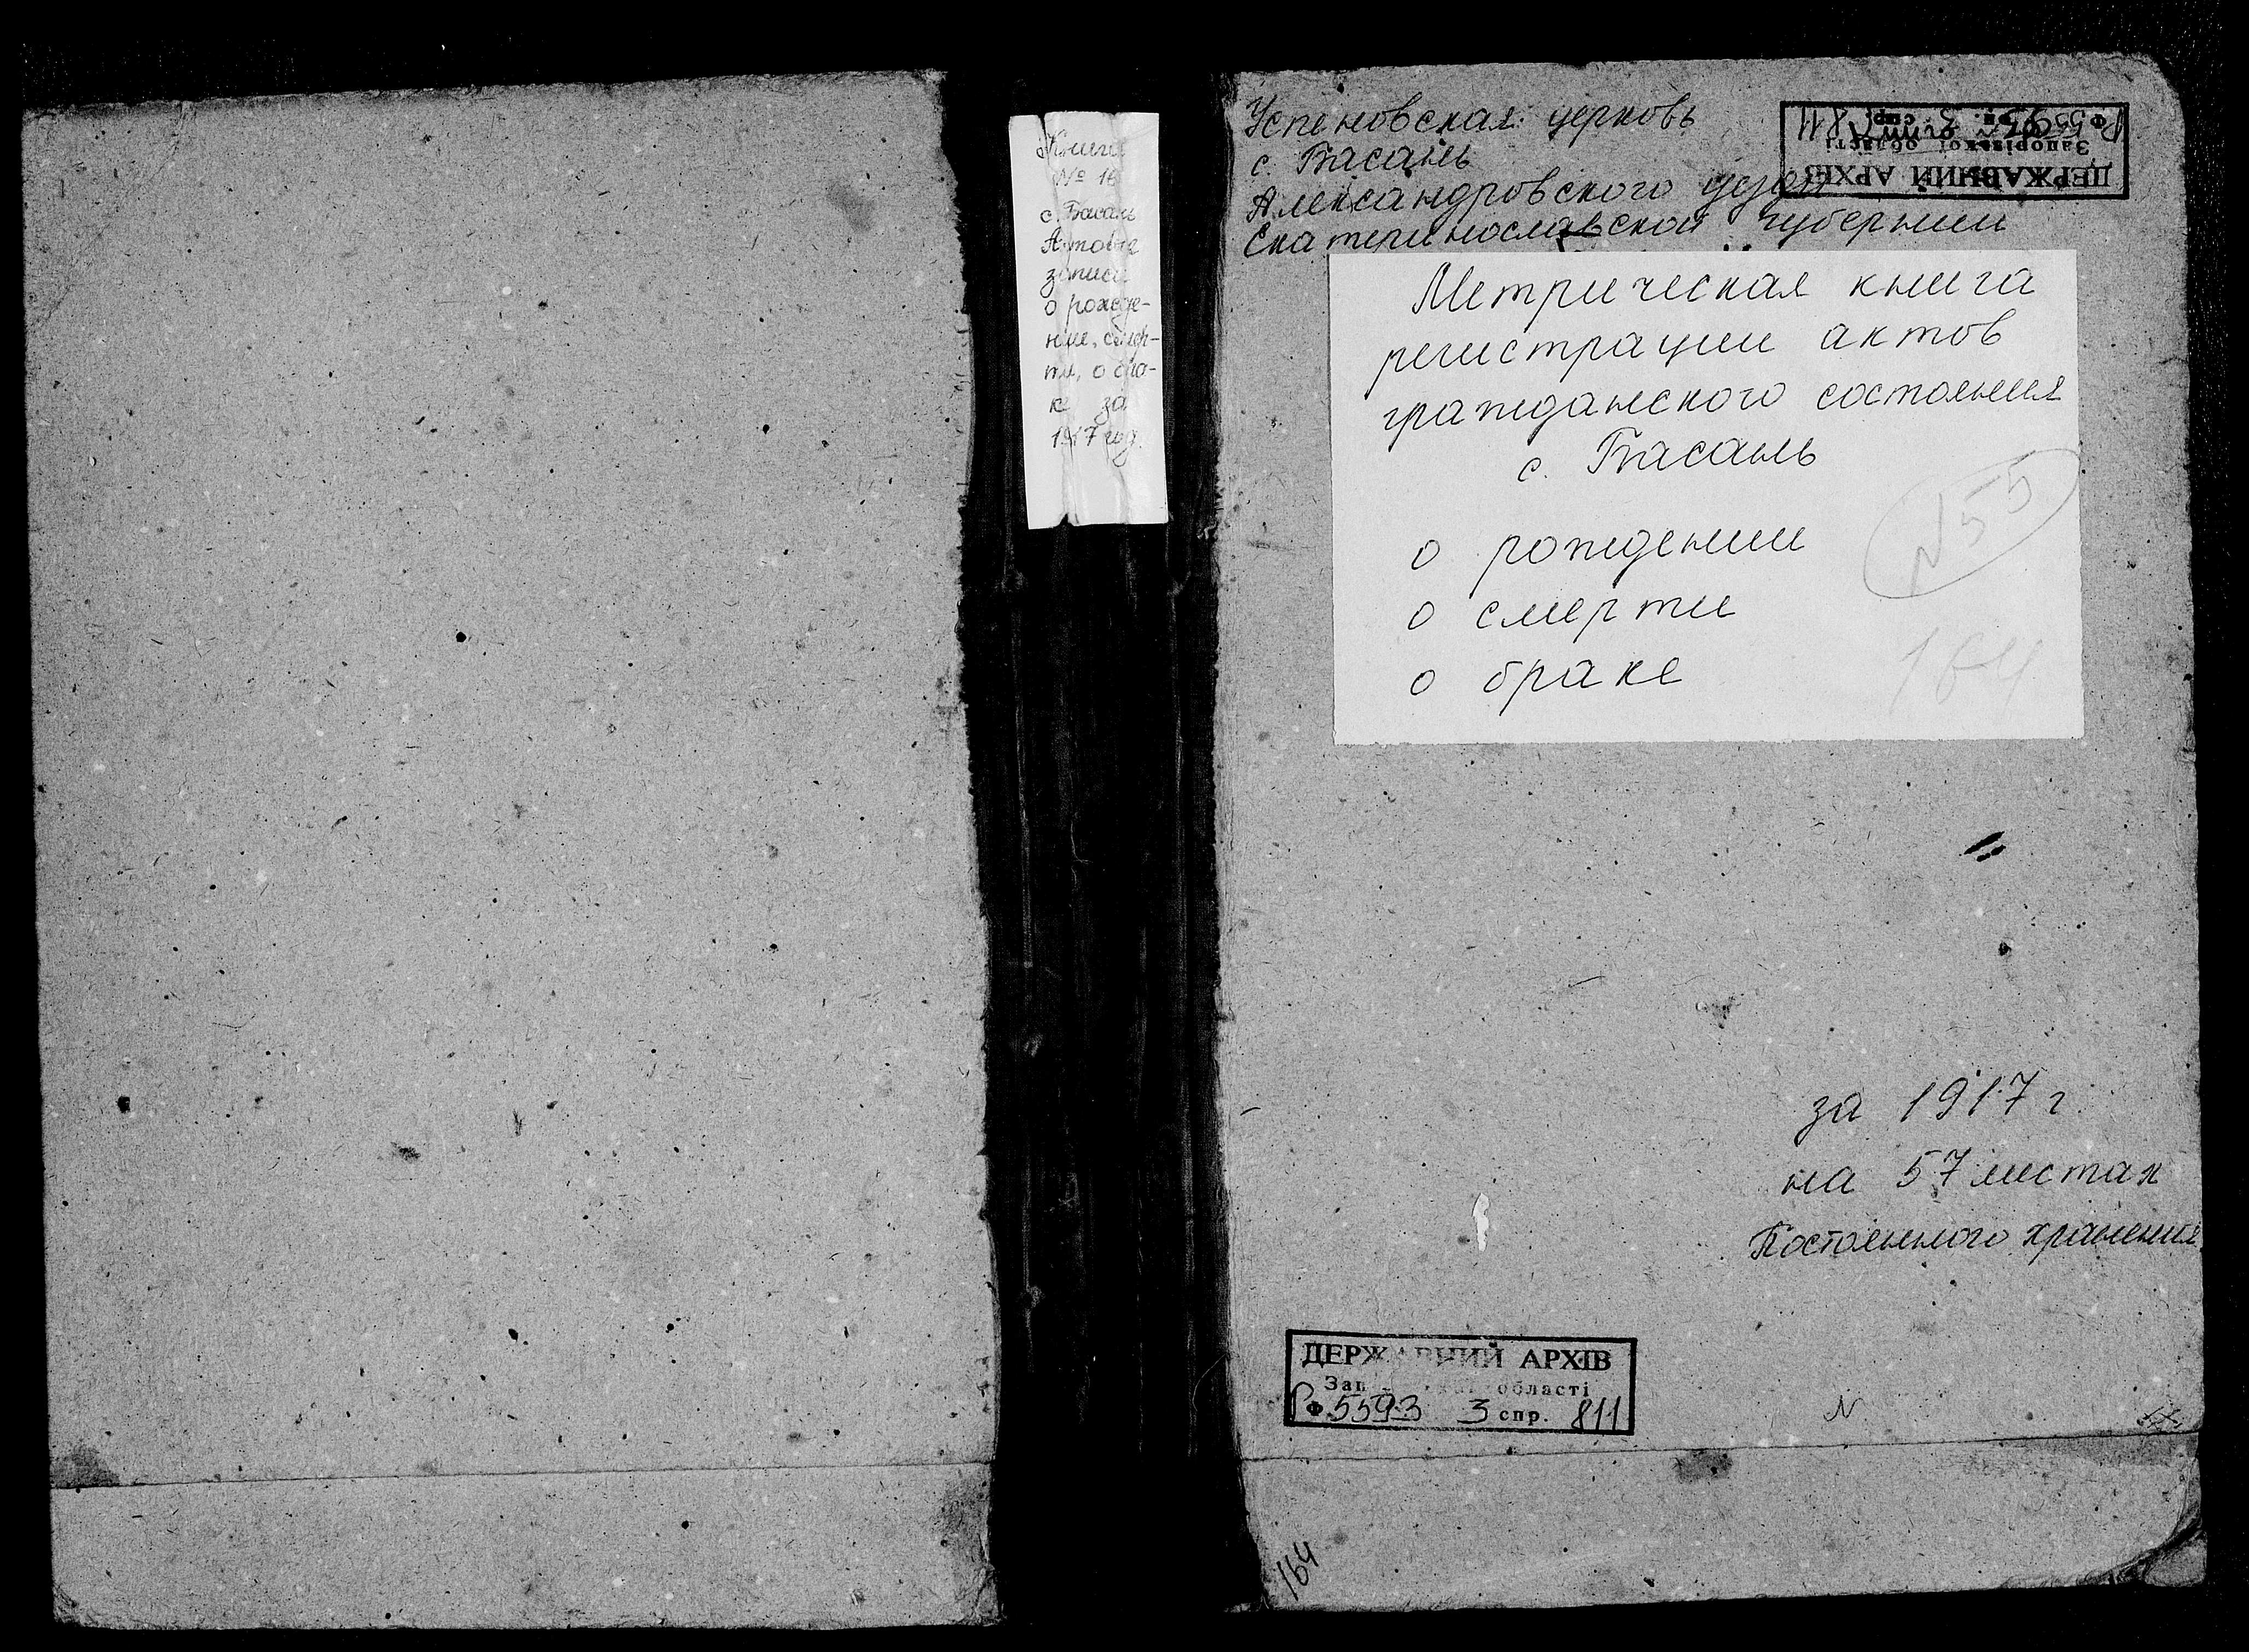 Книга
№ 16
с. Басань
Актовые
записи
о рожде-
нии, смер-
ти, о бра-
ке за
1917 год.
Успеновская церковь
с. Басань
Александровского уезда
Екатеринославской губернии
ДЕРЖАВНИЙ АРХІВ
Запорізької області
Р Ф. 5593 оп. 3 спр. 811
Метрическая книга
регистрации актов
гражданского состояния
с. Басань
N 55
о рождении
о смерти
164
о браке
за 1917 г.
на 57 листах
Постоянного хранения
ДЕРЖАВНИЙ АРХІВ
Запорізької області
Р Ф. 5593 3 спр. 811
N
164